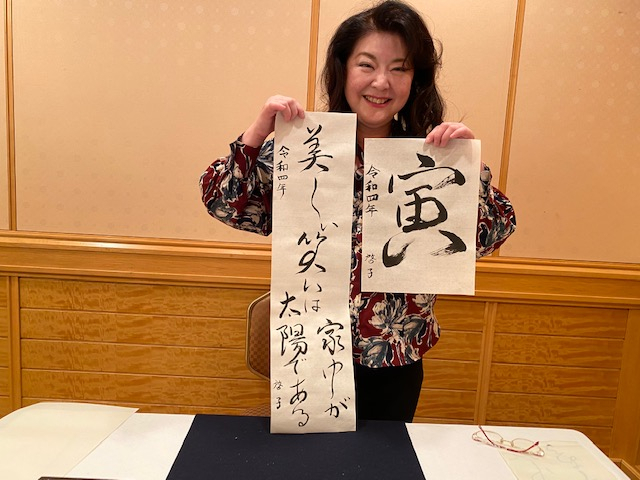 美しい笑いは
家中が
太陽である
令和四年
寅
令和四年